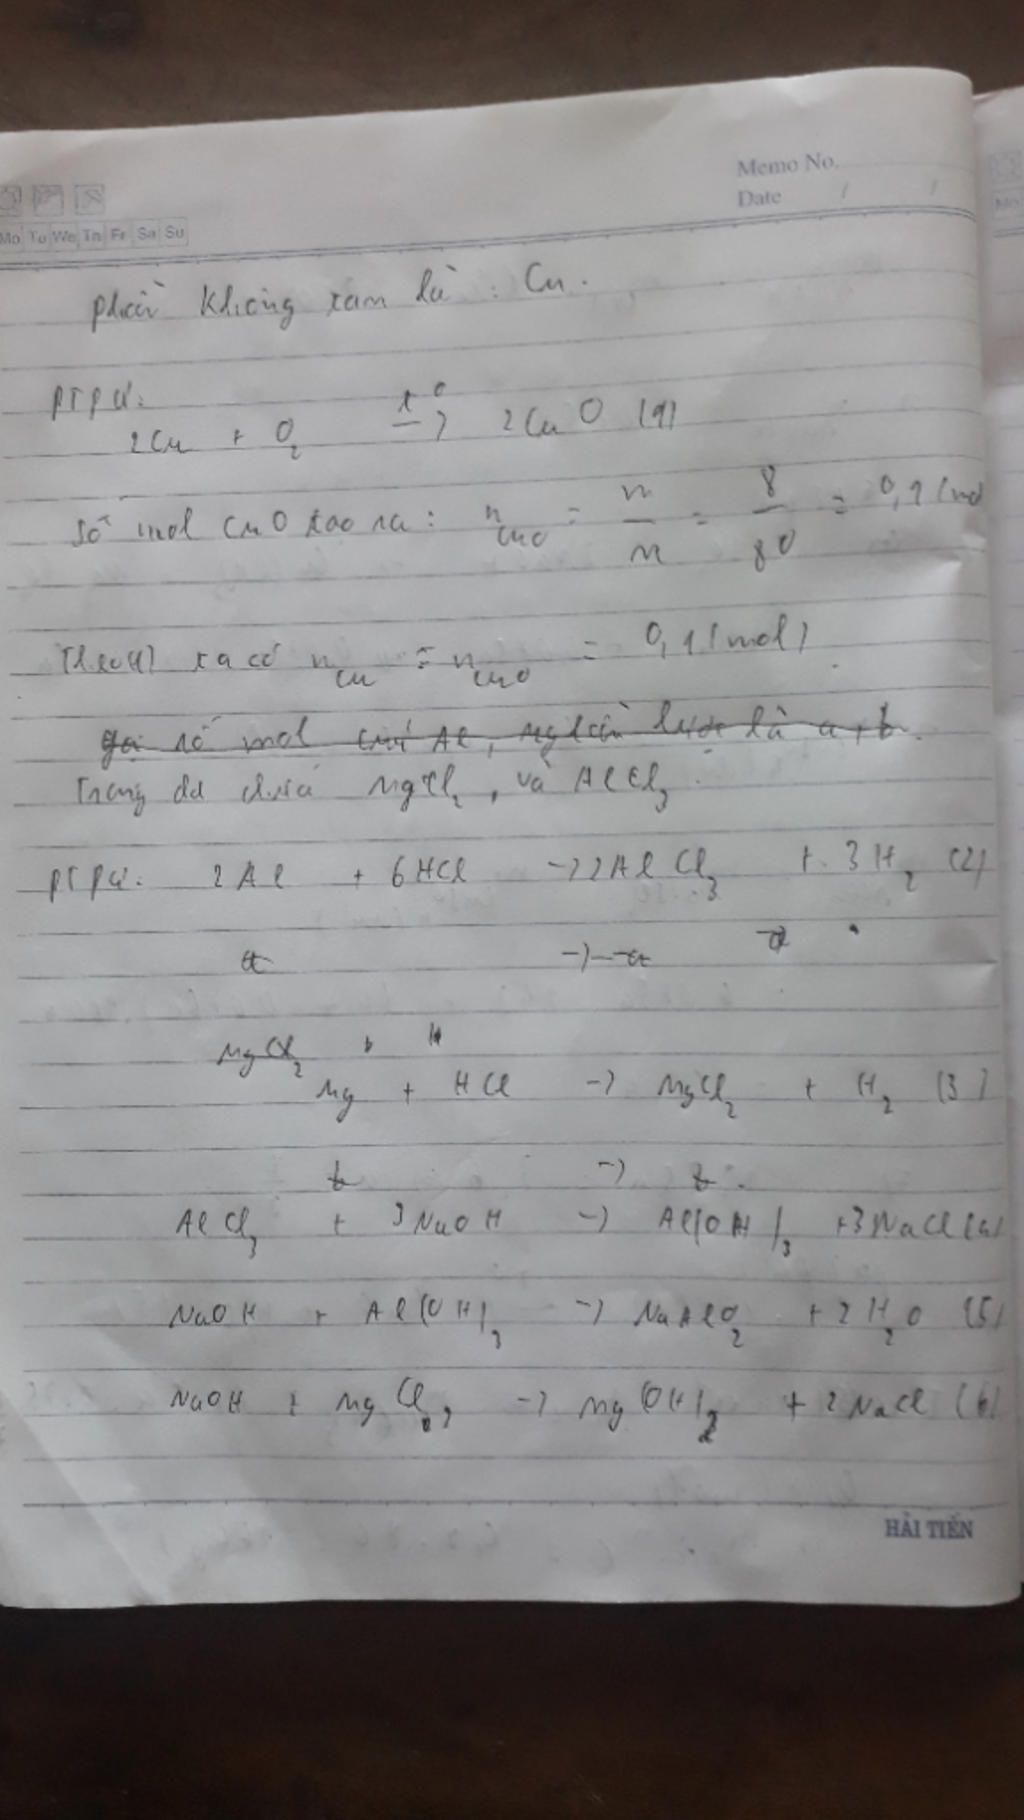 Memo No.
Date / /
Mo Tu We Th Fr Sa Su
phần không tan là : Cu.
PTPƯ:
2Cu + O2 t° → 2CuO (1)
Số mol CuO tạo ra : nCuO = m/M = 8/80 = 0,1 (mol
Theo (1) ta có nCu = nCuO = 0,1 (mol)
gọi số mol Al, Mg lần lượt là a, b.
Trong dd chứa MgCl2, và AlCl3.
PTPƯ: 2Al + 6HCl → 2AlCl3 + 3H2 (2)
a → a
MgCl2
Mg + HCl → MgCl2 + H2 (3)
b → b
AlCl3 + 3NaOH → Al(OH)3 + 3NaCl (4)
NaOH + Al(OH)3 → NaAlO2 + 2H2O (5)
NaOH + MgCl2 → Mg(OH)2 + 2NaCl (6)
HẢI TIẾN